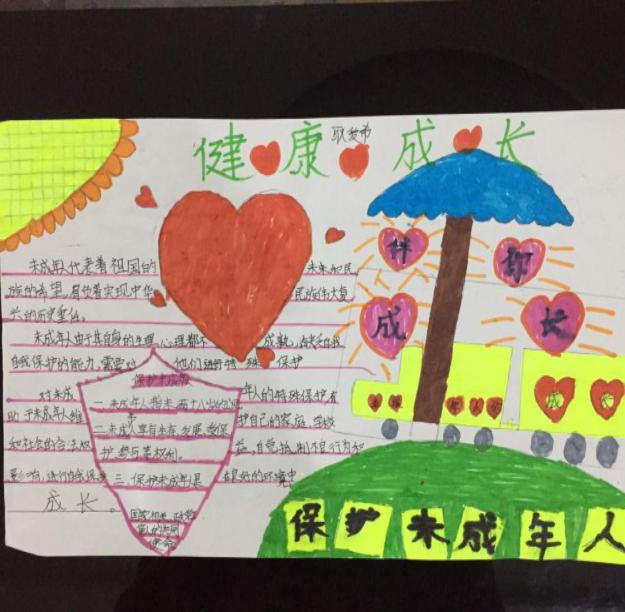 健康成长
伴你
成长
未成年人代表着祖国的未来和民
族的希望,肩负着实现中华民族伟大复
兴的历史重任。
未成年人由于其自身的生理心理都不成熟,缺乏自我
自我保护的能力,需要对他们进行特殊保护
对未成年人的特殊保护有
助于未成年人维护自己的家庭、学校
和社会的合法权益,自觉抵制不良行为和
影响,进行自我保护
良好的环境中
成长。
一未成年人指未满十八岁的公
二未成年人享有生存、发展、受保
护、参与等权利。
三、保护未成年人是
国家机关、政党
的共同
使命
未成年人
成长
保护未成年人